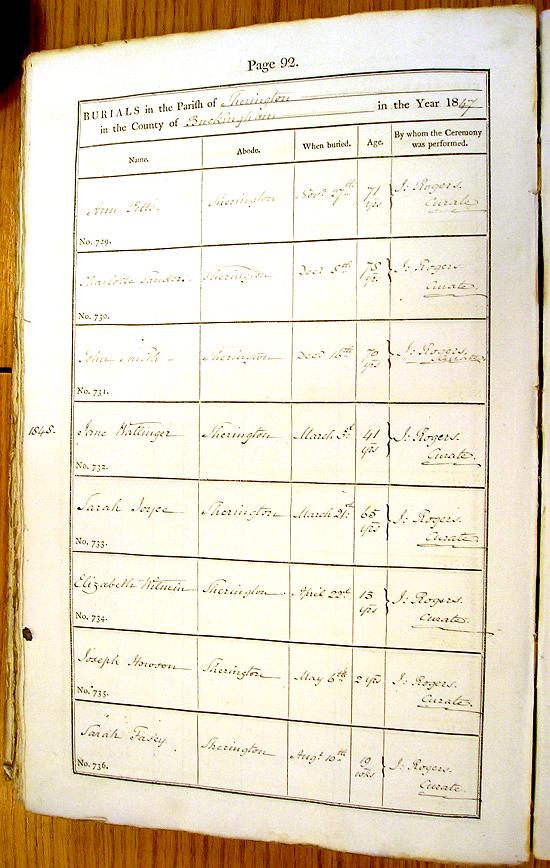 Page 92.
BURIALS in the Parish of Sherington
in the County of Buckingham in the Year 1847
Name. Abode. When buried. Age. By whom the Ceremony was performed.
Ann Pitts. Sherington Novr. 27th 71 yrs J: Rogers. Curate
No. 729.
Charlotte Sanders. Sherington Decr 5th 78 yrs J: Rogers. Curate.
No. 730.
John Smith Sherington Decr 16th 70 yrs J: Rogers. Curate.
No. 731.
1848. Jane Sherington March 3d 41 yrs J: Rogers. Curate.
No. 732.
Sarah Joyce Sherington March 21st 65 yrs J: Rogers. Curate.
No. 733.
Elizabeth Sherington April 22d 15 yrs J: Rogers. Curate.
No. 734.
Joseph Howson Sherington May 6th 2 yrs J: Rogers. Curate.
No. 735.
Sarah Fasey. Sherington Augt 10th 10 wks J: Rogers. Curate.
No. 736.